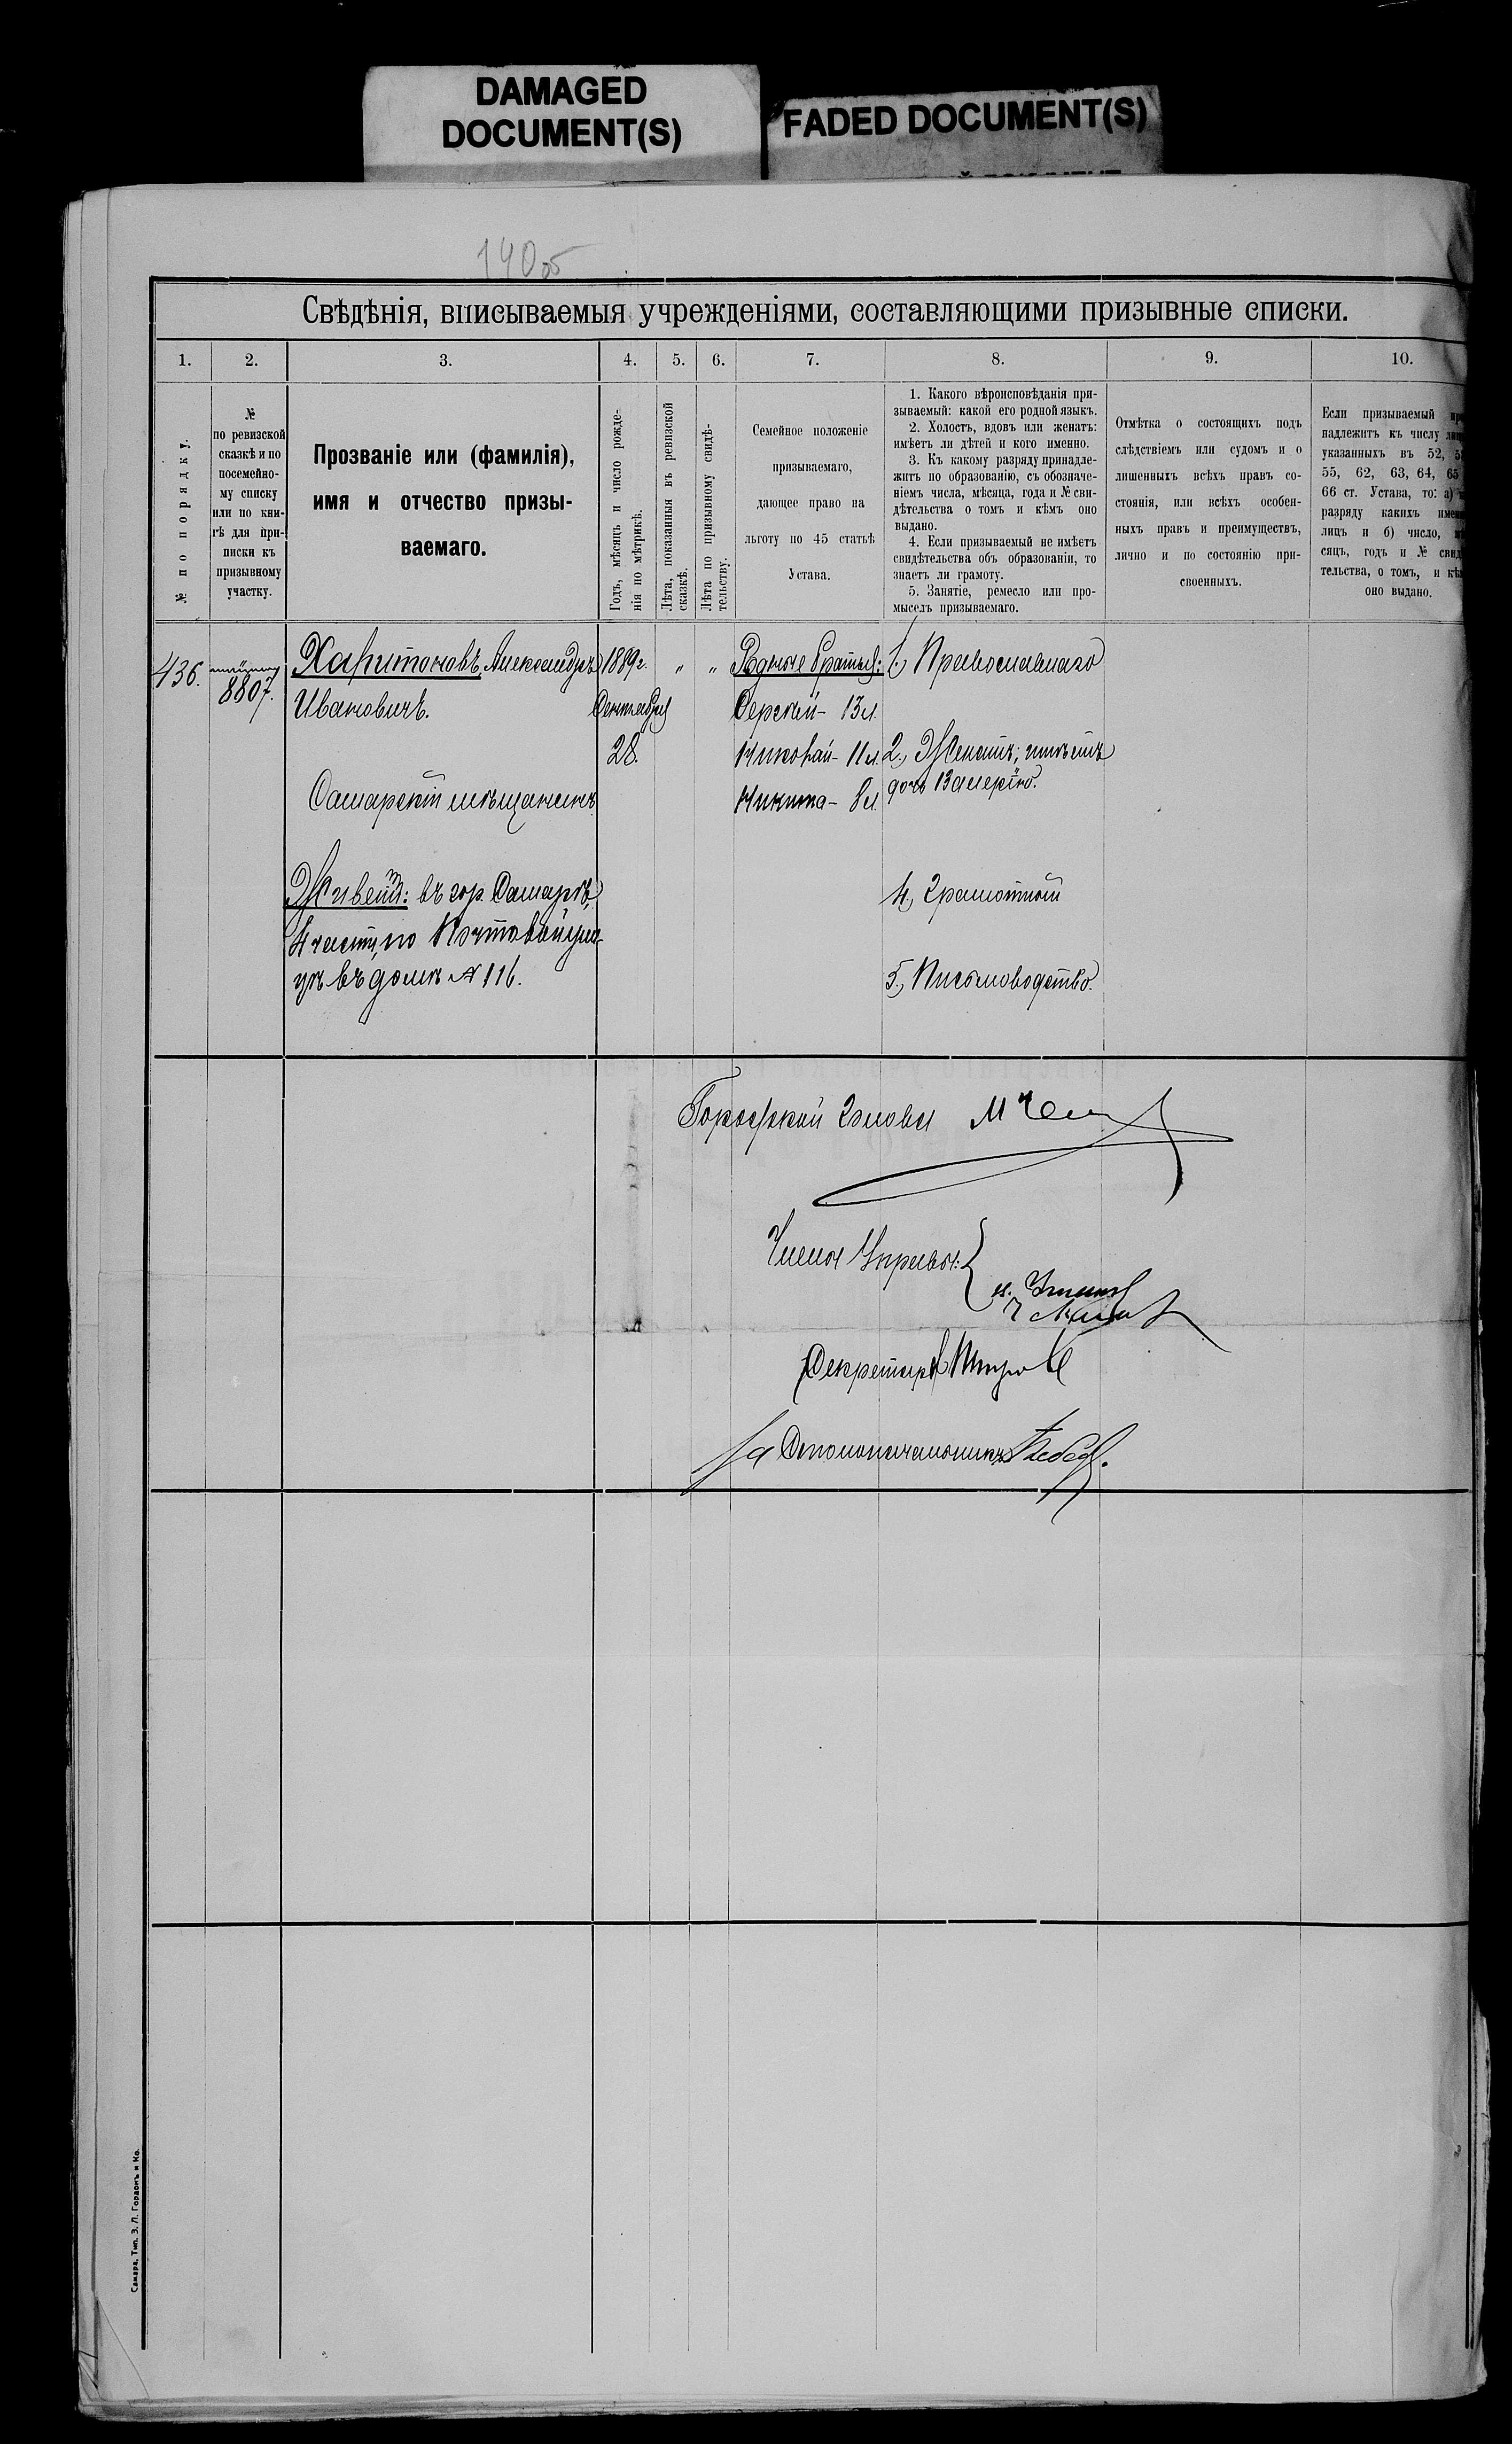 DAMAGED
DOCUMENT(S)
FADED DOCUMENT(S)
140об
Свѣдѣнія, вписываемыя учрежденіями, составляющими призывные списки.
1. 2. 3. 4. 5. 6. 7. 8. 9. 10.
№ по порядку.
№
по ревизской
сказкѣ и по
посемейно-
му списку
или по кни-
гѣ для при-
писки къ
призывному
участку.
Прозваніе или (фамилія),
имя и отчество призы-
ваемаго.
Годъ, мѣсяцъ и число рожде-
нія по мѣтрикѣ.
Лѣта, показанныя въ ревизской
сказкѣ.
Лѣта по призывному свидѣ-
тельству.
Семейное положеніе
призываемаго,
дающее право на
льготу по 45 статьѣ
Устава.
1. Какого вѣроисповѣданія при-
зываемый: какой его родной языкъ.
2. Холостъ, вдовъ или женатъ:
имѣетъ ли дѣтей и кого именно.
3. Къ какому разряду принадле-
житъ по образованію, съ обозначе-
ніемъ числа, мѣсяца, года и № сви-
дѣтельства о томъ и кѣмъ оно
выдано.
4. Если призываемый не имѣетъ
свидѣтельства объ образованіи, то
знаетъ ли грамоту.
5. Занятіе, ремесло или про-
мыселъ призываемаго.
Отмѣтка о состоящихъ подъ
слѣдствіемъ или судомъ и о
лишенныхъ всѣхъ правъ со-
стоянія, или всѣхъ особен-
ныхъ правъ и преимуществъ,
лично и по состоянію при-
своенныхъ.
Если призываемый
надлежитъ къ числу
указанныхъ въ 52,
55, 62, 63, 64, 65
66 ст. Устава, то: а)
разряду какихъ
лицъ и б) число,
сяцъ, годъ и №
тельства, о томъ, и
оно выдано.
436.
8807.
Харитоновъ, Александръ
Ивановичъ.
Самарскій мѣщанинъ
Живетъ: въ гор. Самарѣ,
4 части, по Почтовой ули-
цѣ въ домѣ № 116.
1889г.
Сентября
28.
" "
Родные братья:
Сергѣй - 13 л.
Николай - 11 л.
Никита - 8 л.
1., Православнаго
2., Женатъ; имѣетъ
дочь Валерію.
4., Грамотный
5., Письмоводство.
Городской Голова
Члены Управы:
Секретарь
За Столоначальника
Самара, Тип. З. Л. Гордонъ и Ко.